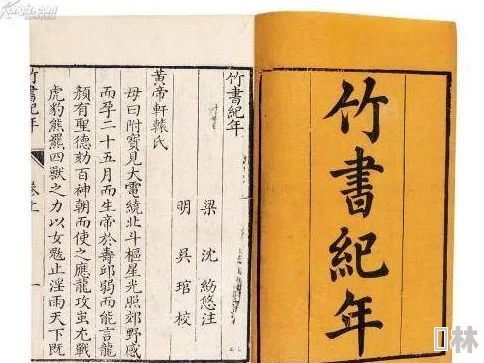 竹書紀年
竹書紀年
梁 沈約 注
明 吳琯校
黃帝軒轅氏
母曰附寶見大電繞北斗樞星光照郊野感
而孕二十五月而生帝於壽邱弱而能言龍
顏有聖德劾百神朝而使之應龍攻蚩尤戰
虎豹熊羆四獸之力以女魃止淫雨天下既
竹書紀年
卷上
一
林